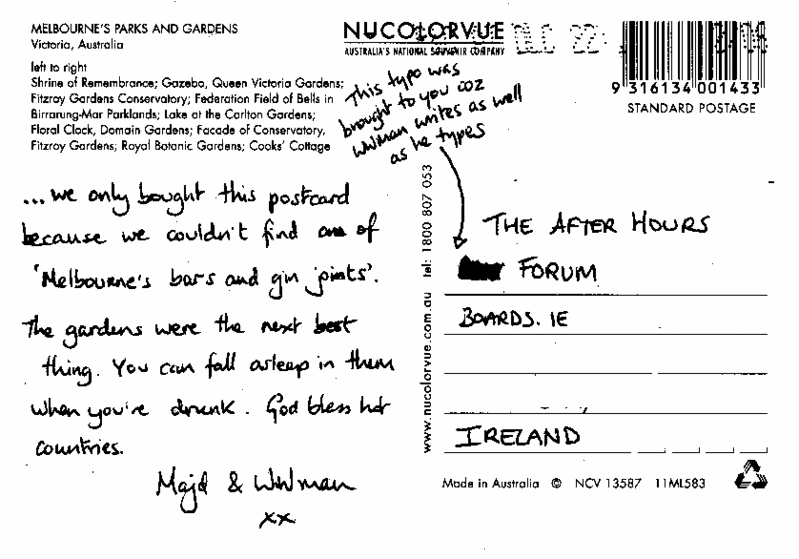 MELBOURNE'S PARKS AND GARDENS
Victoria, Australia
left to right
Shrine of Remembrance; Gazebo, Queen Victoria Gardens;
Fitzroy Gardens Conservatory; Federation Field of Bells in
Birrarung-Mar Parklands; Lake at the Carlton Gardens;
Floral Clock, Domain Gardens; Facade of Conservatory,
Fitzroy Gardens; Royal Botanic Gardens; Cooks' Cottage
NUCOLORVUE
AUSTRALIA'S NATIONAL SOUVENIR COMPANY
DEC 22
9 316134 001433
STANDARD POSTAGE
This typo was
brought to you coz
Whman writes as well
as he types
...we only bought this postcard
because we couldn't find one of
'Melbourne's bars and gin joints'.
The gardens were the next best
thing. You can fall asleep in them
when you're drunk. God bless hot
countries.
Majd & Whman
xx
www.nucolorvue.com.au tel: 1800 807 053
THE AFTER HOURS
FORUM
BOARDS.IE
IRELAND
Made in Australia © NCV 13587 11ML583